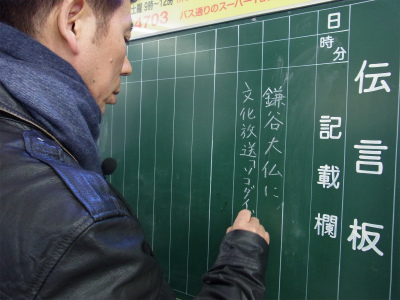 土曜 9時～12時
4703
バス通りのスーパー
伝言板
日
時分
記載欄
鎌谷大仏に
文化放送「ソコダイジ